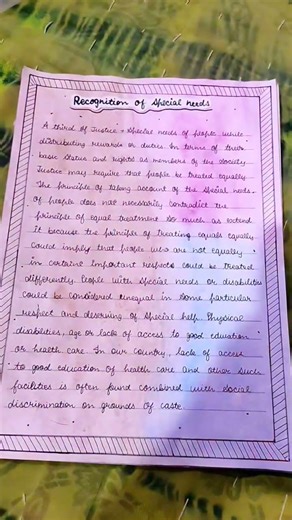 Recognition of Special needs
A third of Justice = Special needs of people while
distributing rewards or duties. In terms of their
basic status and rights as members of the Society
Justice may require that people be treated equally
The principle of taking account of the special needs-
of people does not necessarily contradict the
principle of equal treatment so much as extend
it because the principle of treating equals equally
could imply that people who are not equally
in certains important respects could be treated
differently. People with special needs or disabilities
could be considered unequal in some particular
respect and deserving of special help. Physical
disabilities, age or lack of access to good education
or health care. In our country, lack of access
to good education of health care and other such
facilities is often found combined with social
discrimination on grounds of caste.